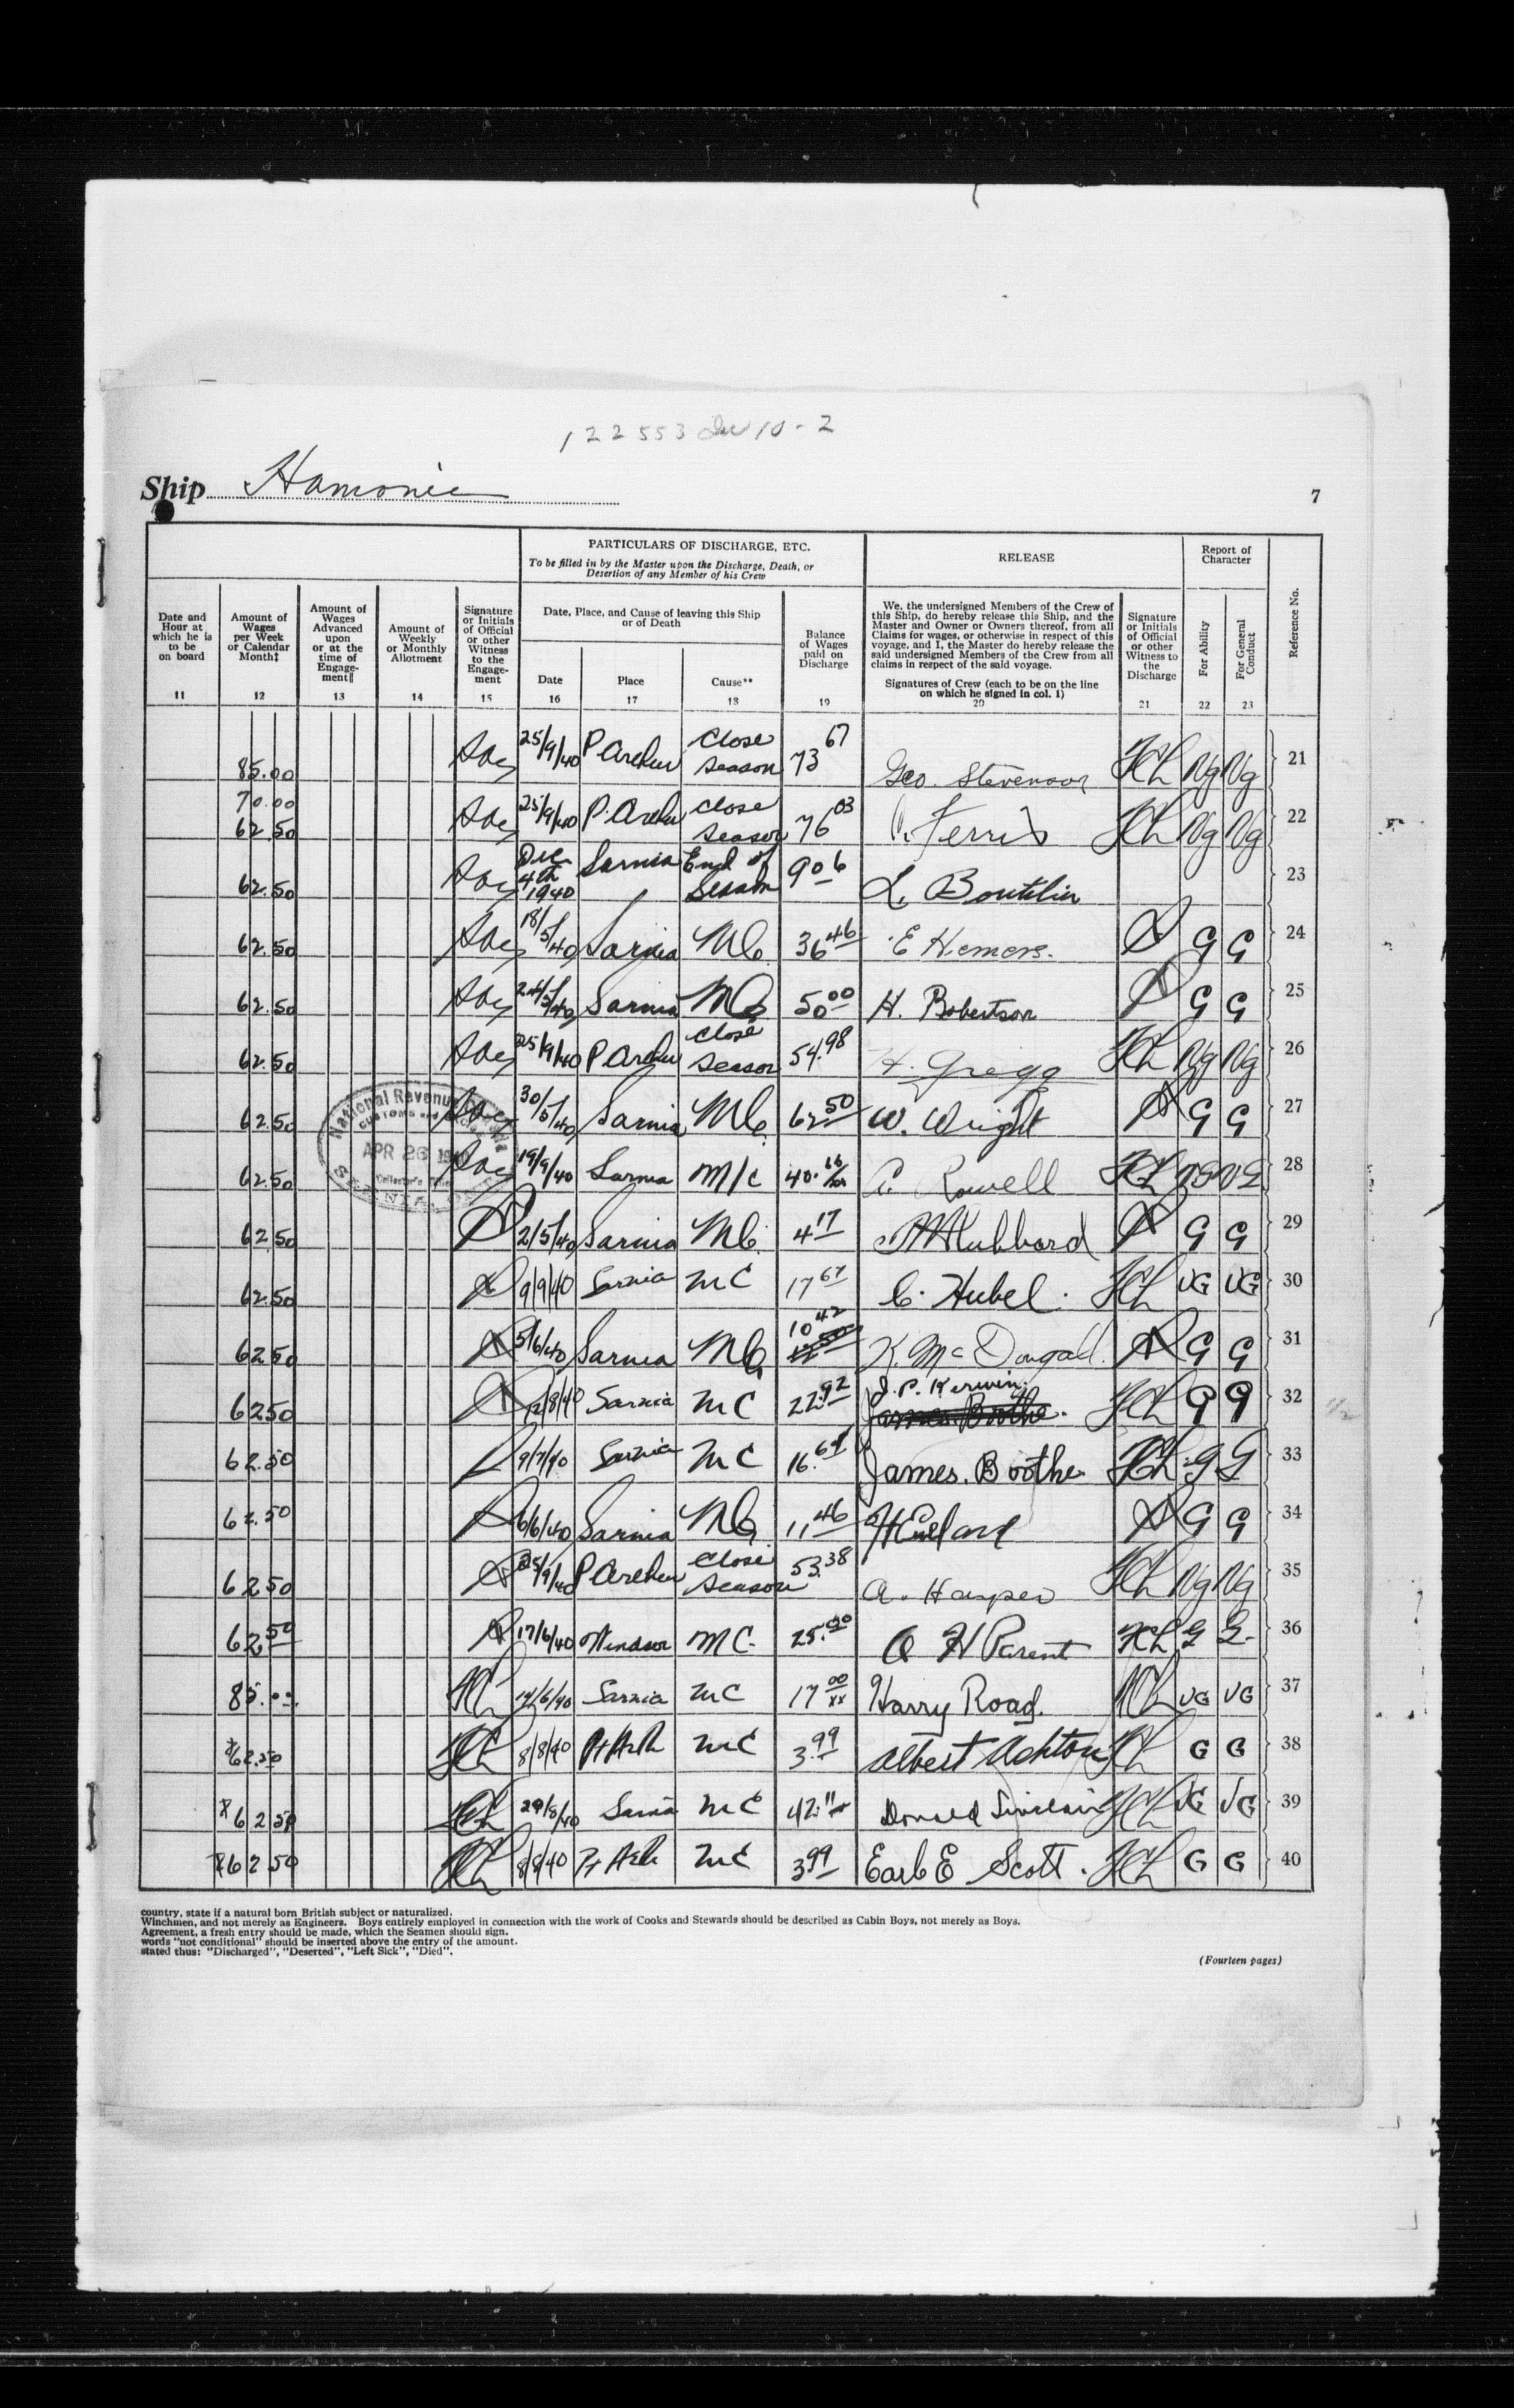 122553
Ship Hamonic
7
PARTICULARS OF DISCHARGE, ETC.
To be filled in by the Master upon the Discharge, Death, or
Desertion of any Member of his Crew
RELEASE
Report of
Character
Reference No.
Date and
Hour at
which he is
to be
on board
Amount of
Wages
per Week
or Calendar
Month‡
Amount of
Wages
Advanced
upon
or at the
time of
Engage-
ment‖
Amount of
Weekly
or Monthly
Allotment
Signature
or Initials
of Official
or other
Witness
to the
Engage-
ment
Date, Place, and Cause of leaving this Ship
or of Death
Date
Place
Cause**
Balance
of Wages
paid on
Discharge
We, the undersigned Members of the Crew of
this Ship, do hereby release this Ship, and the
Master and Owner or Owners thereof, from all
Claims for wages, or otherwise in respect of this
voyage, and I, the Master do hereby release the
said undersigned Members of the Crew from all
claims in respect of the said voyage.
Signatures of Crew (each to be on the line
on which he signed in col. 1)
Signature
or Initials
of Official
or other
Witness to
the
Discharge
For Ability
For General
Conduct
11 12 13 14 15 16 17 18 19 20 21 22 23
85.00 25/9/40 P Arthur Close Season 73 67 Geo. Stevenson Vg Vg 21
70.00
62.50 25/9/40 P. Arthur Close Season 76 03 Ferris Vg Vg 22
62.50 Dec 4th 1940 Sarnia End of Season 9 06 L. Boutilin 23
62.50 18/5/40 Sarnia MC 36 46 E Hemens. G G 24
62.50 24/5/40 Sarnia MC 50 00 H. Robertson G G 25
62.50 25/9/40 P Arthur Close Season 54.98 H. Gregg Vg Vg 26
National Revenue
CUSTOMS AND
APR 26
62.50 30/5/40 Sarnia MC 62 50 W. Wright G G 27
62.50 19/9/40 Sarnia M/C 40. Rowell VG VG 28
62.50 2/5/40 Sarnia MC 4 17 Hubbard G G 29
62.50 9/9/40 Sarnia MC 17 67 C. Hubel. VG VG 30
62 50 5/6/40 Sarnia MC 10 42 K. McDougall. G G 31
62 50 /8/40 Sarnia MC 22.92 J. P. Kerwin. James Boothe. G G 32
62.50 9/7/40 Sarnia MC 16. James. Boothe. G G 33
62.50 6/6/40 Sarnia MC 11 46 G G 34
62 50 25/9/40 P Arthur Close Season 53.38 A. Harper Vg Vg 35
62 50 17/6/40 Windsor MC. 25.00 H Parent G G 36
85.00 /6/40 Sarnia MC 17 00 Harry Road. VG VG 37
62.50 8/8/40 Pt Arth MC 3.99 Albert Ashton G G 38
62 50 29/8/40 Sarnia MC 42. Donald Sinclair VG VG 39
62 50 8/8/40 Pt Arth MC 3 99 Earl E Scott. G G 40
country, state if a natural born British subject or naturalized.
Winchmen, and not merely as Engineers. Boys entirely employed in connection with the work of Cooks and Stewards should be described as Cabin Boys, not merely as Boys.
Agreement, a fresh entry should be made, which the Seamen should sign.
words "not conditional" should be inserted above the entry of the amount.
stated thus: "Discharged", "Deserted", "Left Sick", "Died".
(Fourteen pages)